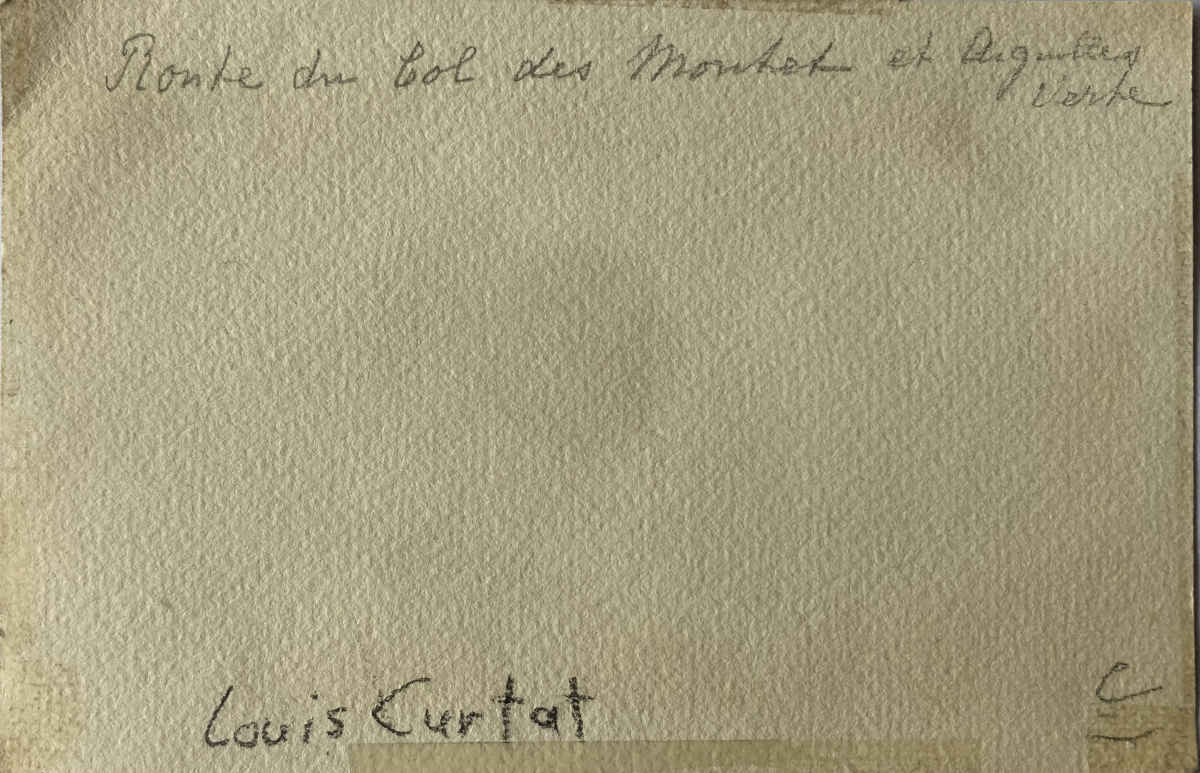 Route du Col des Montet et Aiguilles
Verte
Louis Curtat
C